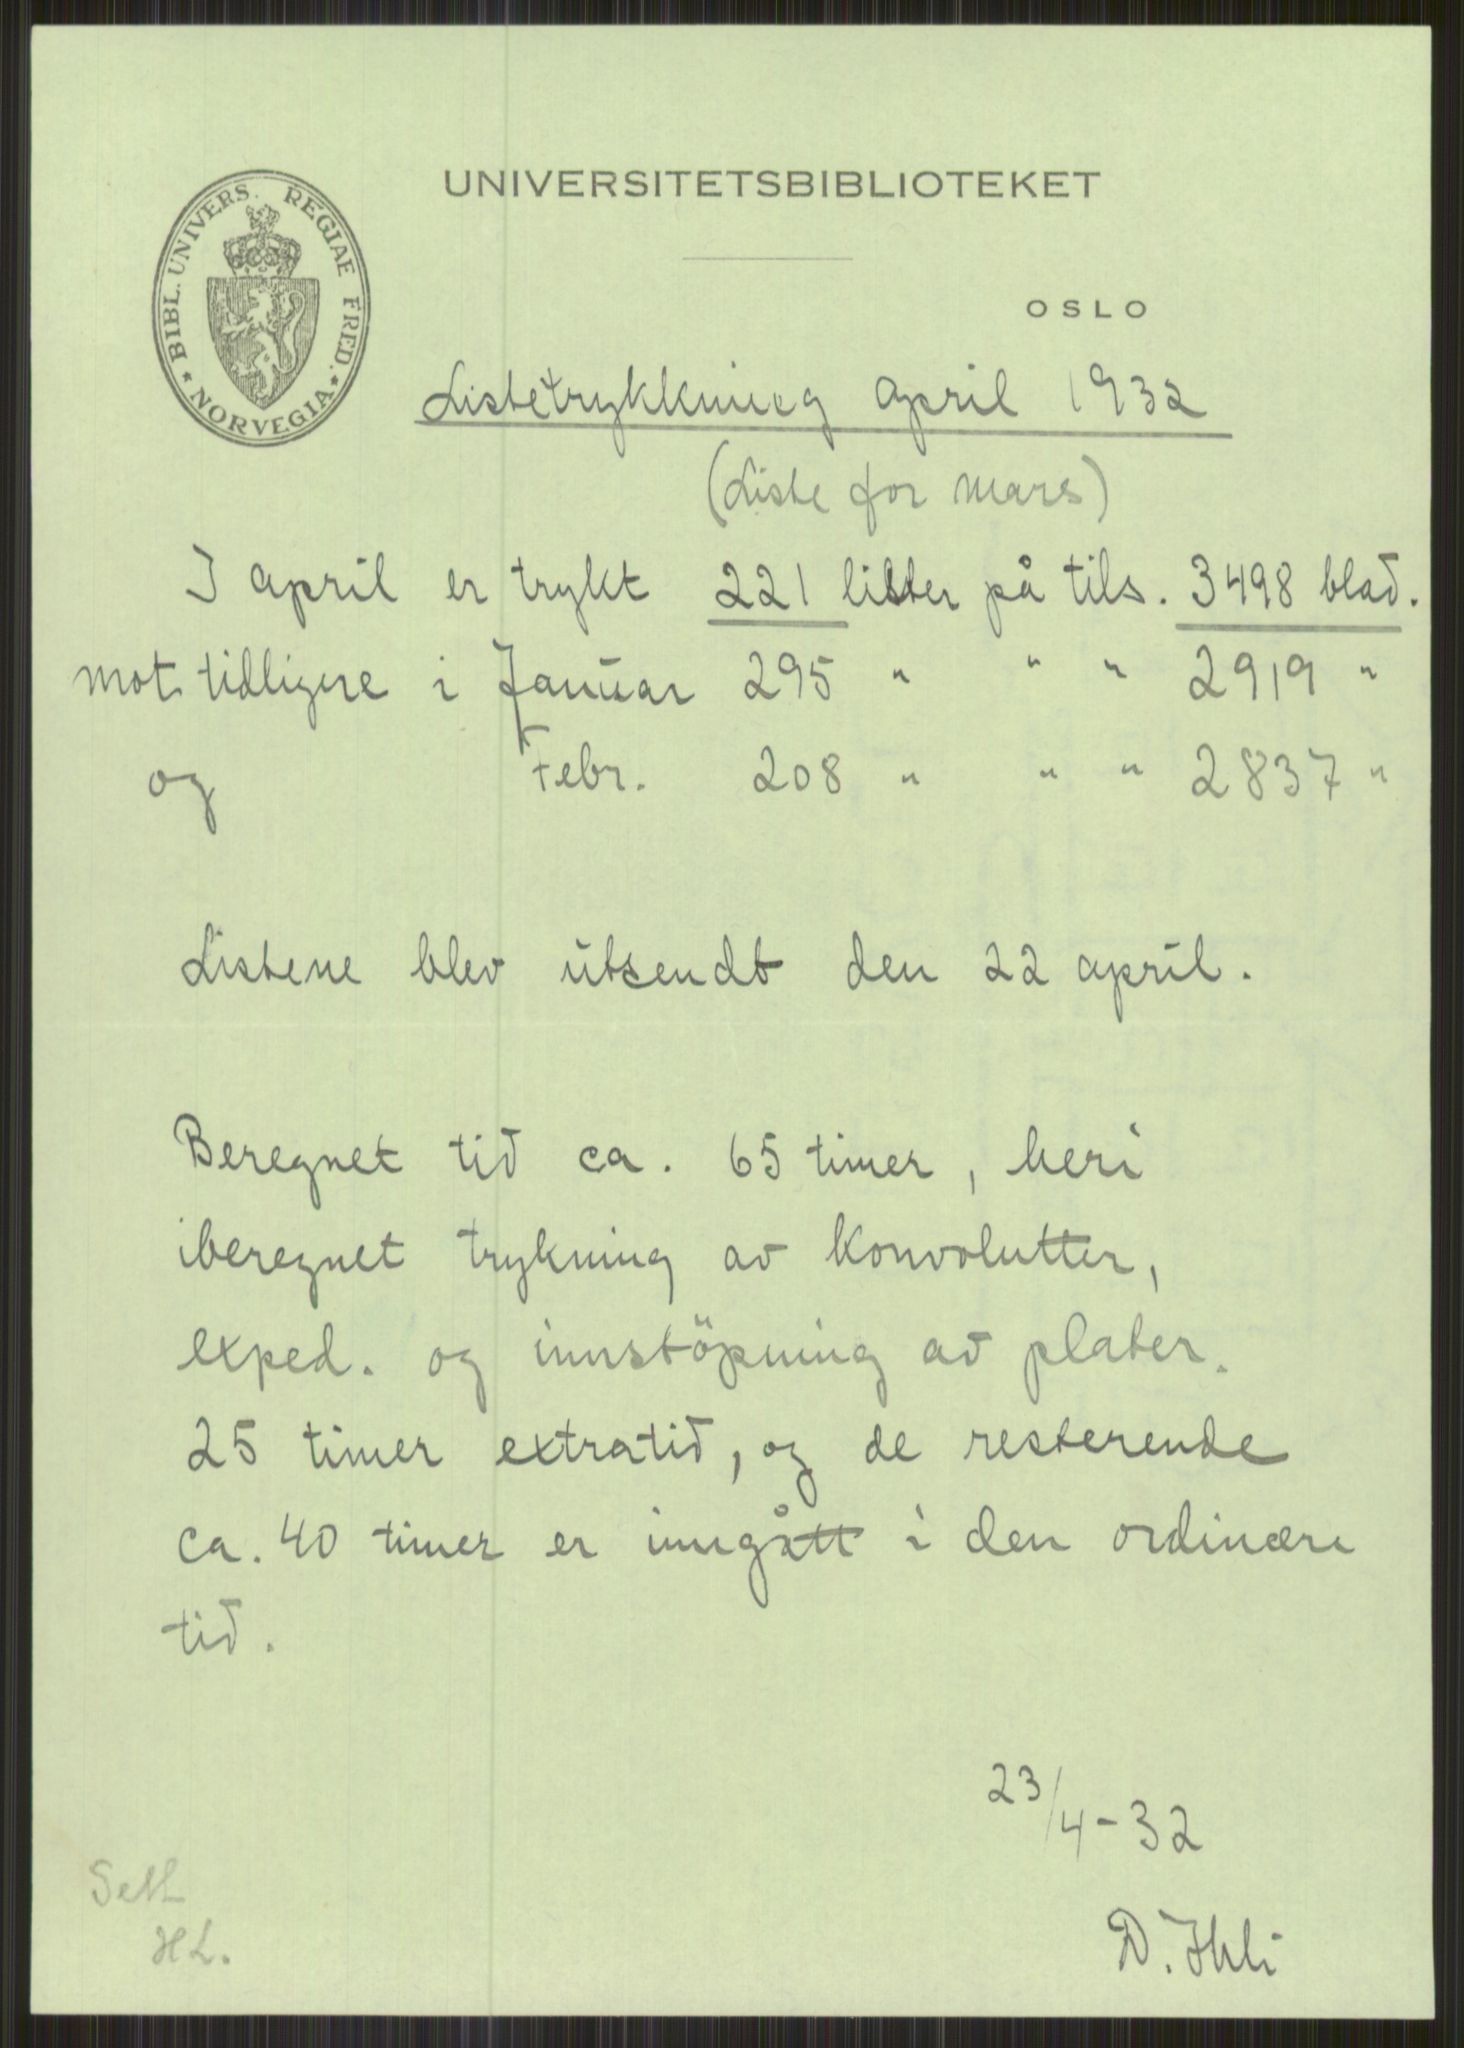 UNIVERSITETSBIBLIOTEKET
BIBL. UNIVERS. REGIAE FRED. * NORVEGIA *
OSLO
Listetrykkning april 1932
(Liste for mars)
I april er trykt 221 lister på tils. 3498 blad.
mot tidligere i Januar 295 " " " 2919 "
og Febr. 208 " " " 2837 "
Listene blev utsendt den 22 april.
Beregnet tid ca. 65 timer, heri
iberegnet trykning av konvolutter,
exped. og innstöpning av plater.
25 timer extratid, og de resterende
ca. 40 timer er inngått i den ordinære
tid.
23/4-32
D. Ihli
Sett
HL.